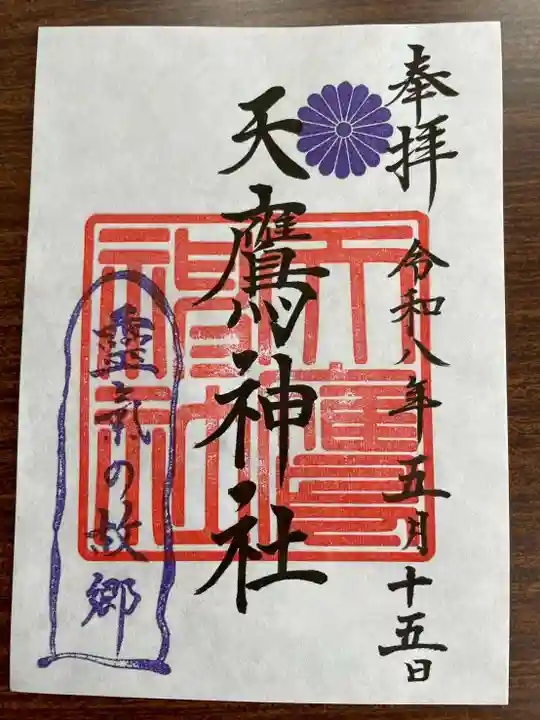 奉拝
令和八年五月十五日
天鷹神社
天鷹神社
靈氣の故郷